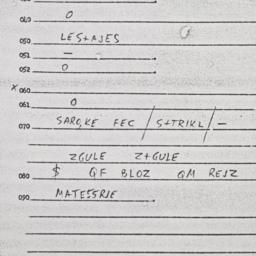 040 O
050 LES+AJES
051 —
052 O
x 060
061 O
070 SARO,KE FEC / S+TRIKL / —
ZGULE Z+GULE
080 $ QF BLOZ QM REJZ
090 MATESSRJE